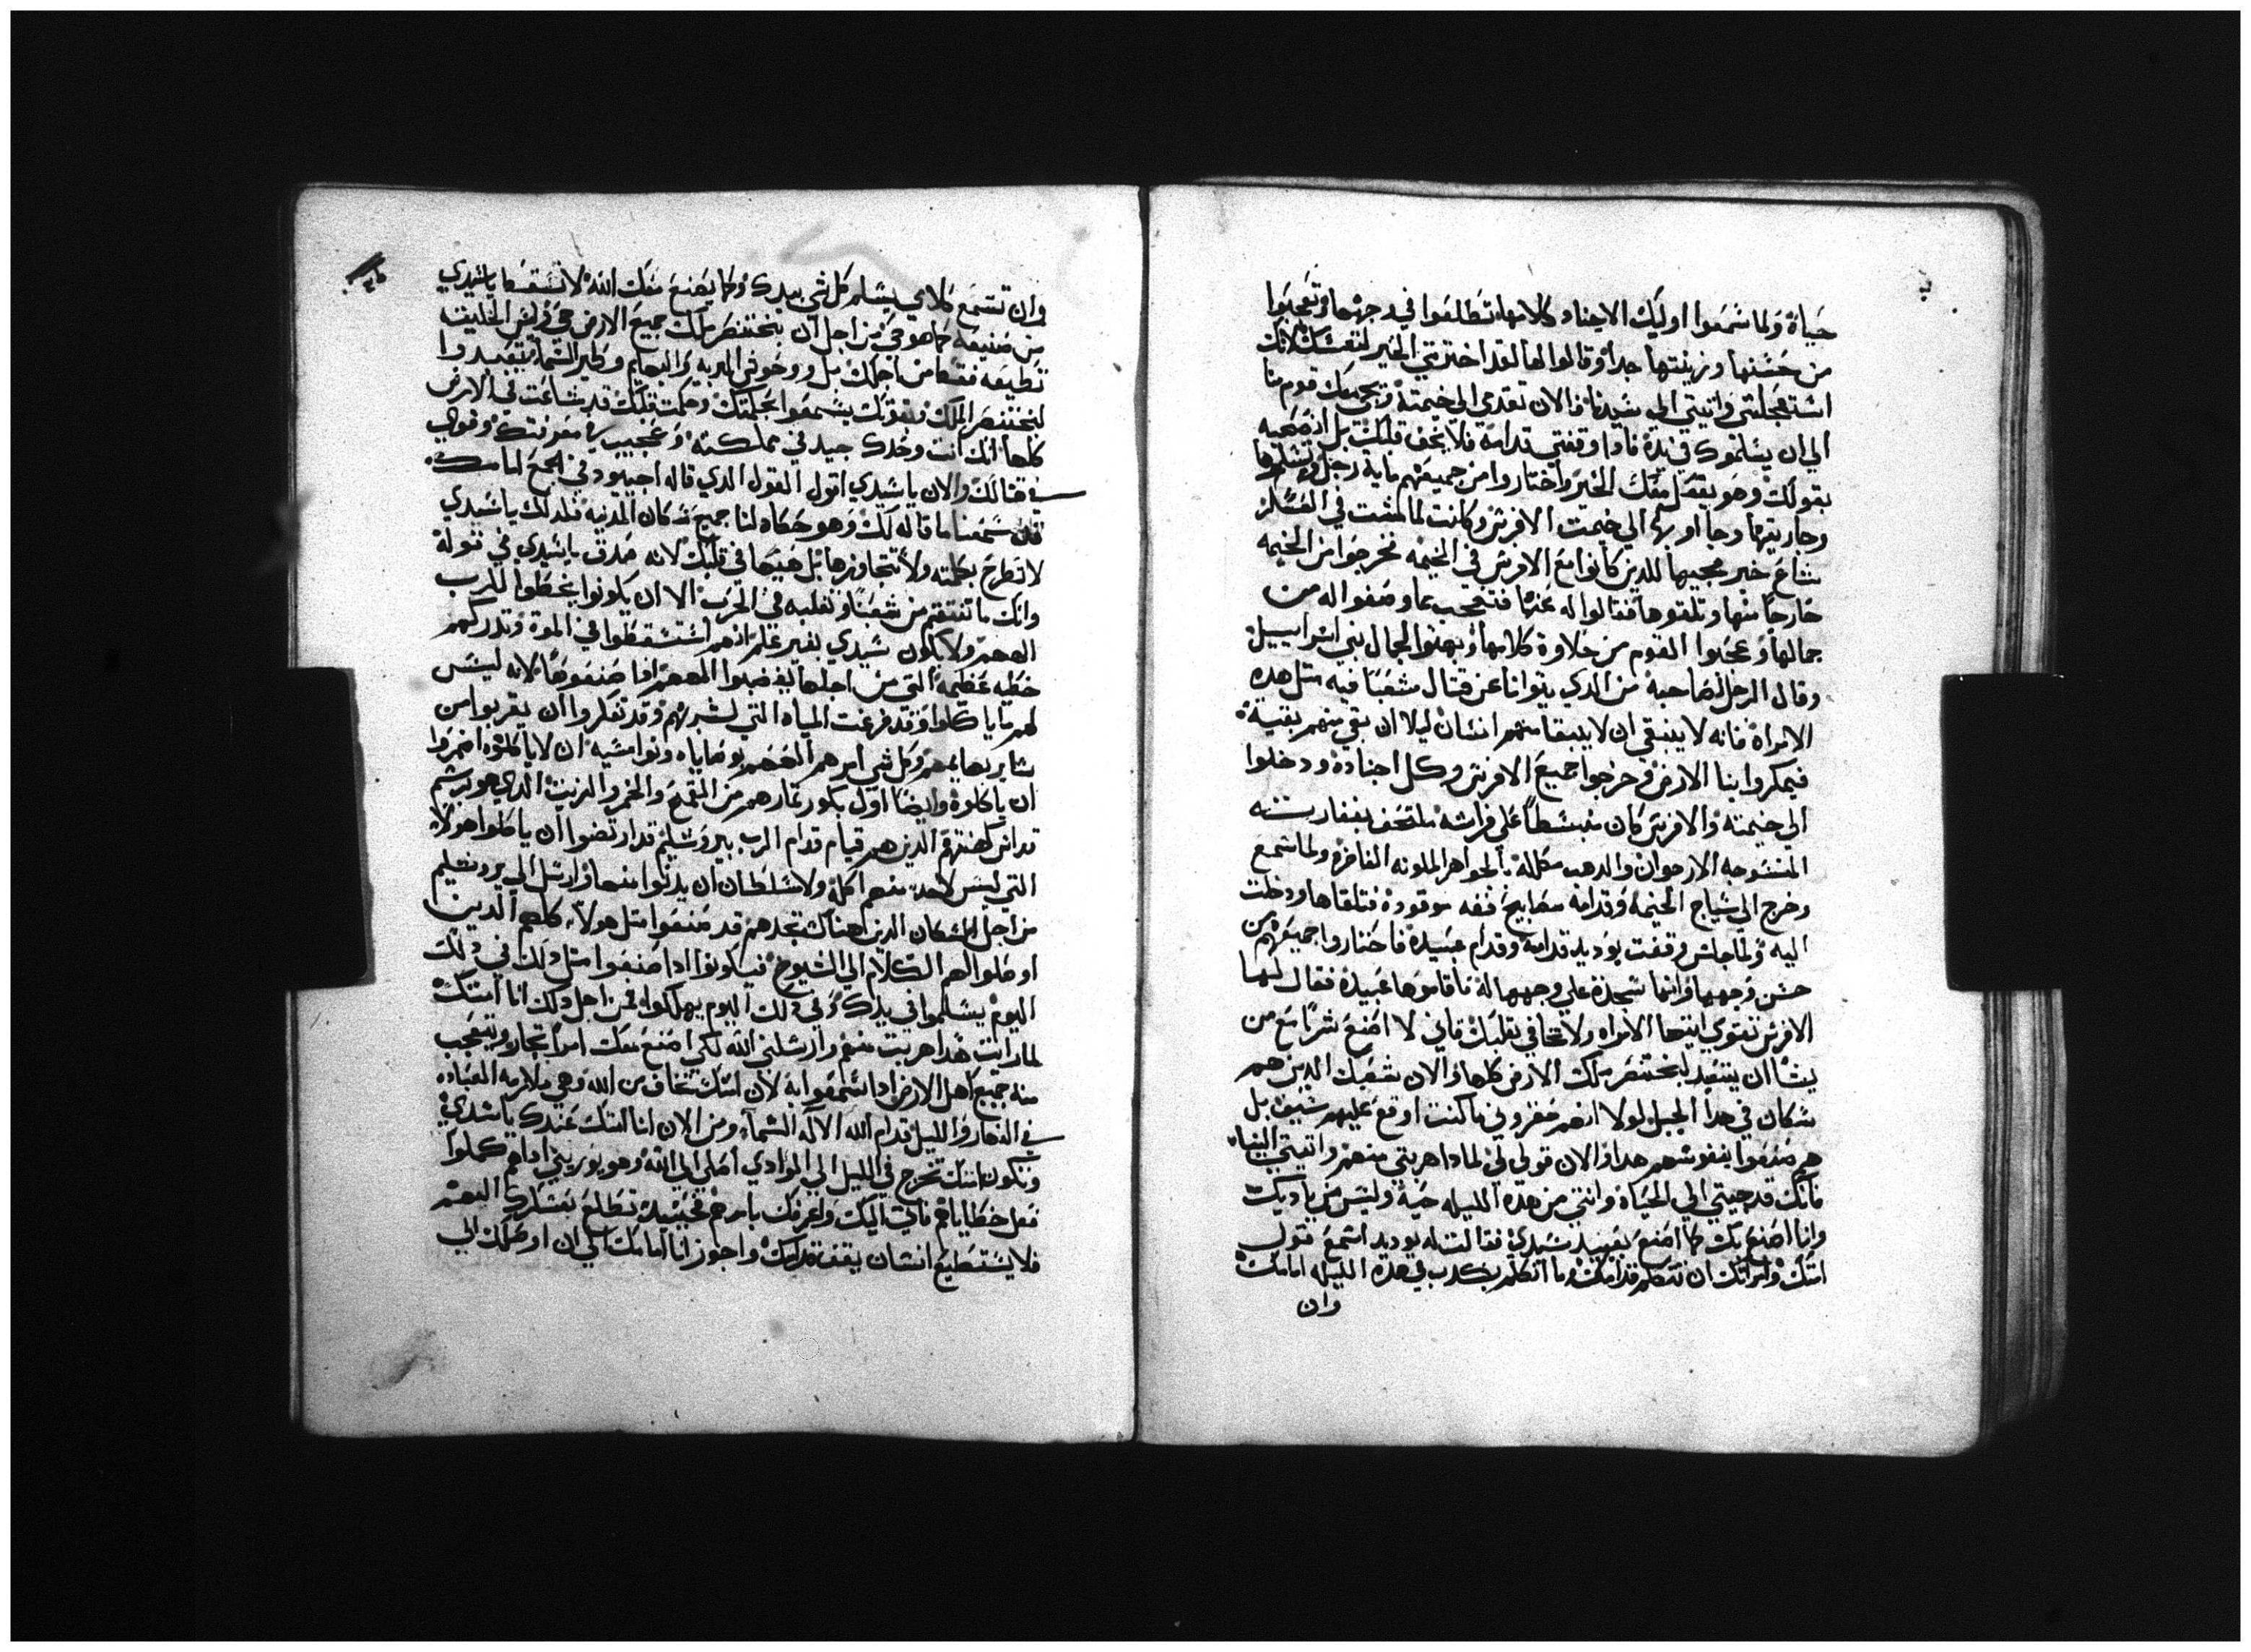 حياة ولما سمعوا اوليك الاجناد كلامها تطلعوا في وجهها وتعجبوا
من حسنها وزينتها جدا وقالوا لها لقد اخترتي الخير لنفسك لانك
استعجلتي واتيتي الي سيدنا فالان تقدي الي خيمته ويجي معك قوم منا
الي ان يسلموك في يده فادا وقفتي قدامه فلا يخف قلبك بل افصحيه
بقولك وهو يفعل معك الخير واختاروا من جميعهم ماية رجل وتسلموها
وجاريتها وجاوا بها الي خيمت الافرنس وكانت لما مشت في العسكر
شاع خبر مجيها للدين كانوا مع الافرنس في الخيمه فخرجوا من الخيمه
خارجا منها وتلقوها فقالوا له عنها فتعجب مما وصفوا له من
جمالها وعجبوا القوم من حلاوة كلامها وبهتوا لجمال بني اسراييل
وقال الرجل لصاحبه من الدي يتوانا عن قتال شعبا فيه متل هده
الامراة فانه لا ينبغي ان لا يبقا منهم انسان ليلا ان بقي منهم بقية
فيمكروا بنا الارض وخرجوا جميع الافرنس وكل اجناده ودخلوا
الي خيمته والافرنس كان منبسطا علي فراشه ملتحف بغفارسته
المنسوجه الارجوان والدهب مكللة بالجواهر الملونه الفاخره ولما سمع
وخرج الي سياج الخيمه وقدامه مصابيح فضه موقوده فتلقاها ودخلت
اليه ولما جلس وقفت يوديد قدامه وقدام عبيده فاحتاروا جميعهم من
حسن وجهها وانها سجدة علي وجهها له فاقاموها عبيده فقال لها
الافرنس تقوي ايتها الامراه ولا تخافي بقلبك فاني لا اصنع شرا مع من
يشا ان يتعبد لبختنصر ملك الارض كلها والان شعبك الدين هم
سكان في هدا الجبل لولا انهم حقروني ما كنت اوقع عليهم سيف بل
هم صنعوا بنفوسهم هدا والان قولي لي لمادا هربتي منهم واتيتي الينا
فانك قد جيتي الي الحياة وانتي من هده الليله حية وليس من يأديك
وانا اصنع بك كما اصنع بعبيد سيدي فقالت له يوديد اسمع قول
امتك وامراتك ان تتكلم قدامك وما اتكلم بكدب في هده الليله امامك
وان
وان تسمع كلامي يسلم كل شي بيدك وكما يصنع معك الله لا تسقط يا سيدي
من صنيعه كما هو حي من اجل ان بختنصر ملك جميع الارض حي وليس الخليقه
تطيعه فقط من اجلك بل ووحوش البريه والبهايم وطير السما يتعبدوا
لبختنصر الملك بقوتك يسمعوا بحكمتك وحكمت قلبك قد شاعت في الارض
كلها انك انت وحدك جيد في مملكته وعجيب في معرفتك وقوي
في قتالك والان يا سيدي اقول القول الدي قاله احيود في الجمع امامك
فقد سمعنا ما قاله لك وهو حكاه لنا جميع سكان المدينه فلدلك يا سيدي
لا تطرح بكلمته ولا تتجاوزها بل ضعها في قلبك لانه صدق يا سيدي في قوله
وانك ما تنتقم من شعبنا وتغلبه في الحرب الا ان يكونوا يخطوا للرب
الههم ولا يكون سيدي بغير علم انهم استسقطوا في الموة وتدركهم
خطيه عظيمة التي من اجلها يغضبوا الههم ادا صنعوها لانه ليس
لهم ما ياكلوا وقد فرغت المياه التي لشربهم وقد تفكروا ان يقربوا من
ساير بهايمهم وكل شي امرهم الههم بوصاياه ونواميسه ان لا ياكلوه اضمروا
ان ياكلوه وايضا اول بكور تمارهم من القمح والخمر والزيت الدي هو برسم
قداس كهنتهم الدين هم قيام قدام الرب بيروشليم قد ارتضوا ان ياكلوا هولاء
التي ليس لاحد منهم اكلة ولا سلطان ان يدنوا منها وارسل الي يروشليم
من اجل السكان الدين هناك تجدهم قد صنعوا متل هولاء كلهم الدين
اوصلوا لهم الكلام الي الشيوخ فيكونوا ادا صنعوا متل دلك في دلك
اليوم يسلموا في يدك وفي دلك اليوم يهلكوا فمن اجل دلك انا امتك
لما رايت هدا هربت منهم وارسلني الله لكي اصنع معك امرا تحار وتتعجب
منه جميع اهل الارض ادا سمعوا به لان امتك تخاف من الله وهي ملازمه العباده
في النهار والليل قدام الله الاله السماء ومن الان انا امتك عندك يا سيدي
وتكون امتك تخرج في الليل الي الوادي اصلي الي الله وهو يوريني ادا هم كملوا
فعل خطاياهم فاتي اليك واعرفك بامرهم فحينيد تطلع بعسكرك اليهم
فلا يستطيع انسان يقف قدامك واجوز انا امامك الي ان اوصلك الي